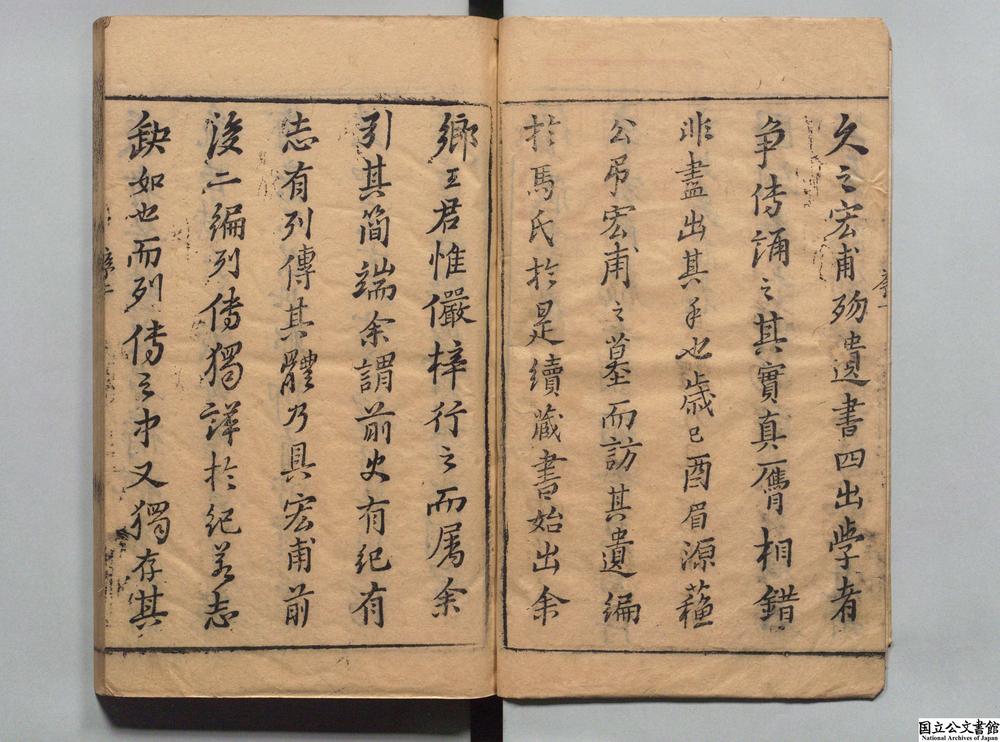 久之宏甫歿遺書四出學者
争傳誦之其實真贋相錯
非盡出其手也歲己酉眉源蘓
公吊宏甫之墓而訪其遺編
扵馬氏扵是續藏書始出余
鄉王君惟儼梓行之而属余
引其簡端余謂前史有紀有
志有列傳其體乃具宏甫前
後二編列傳獨詳扵紀若志
缺如也而列傳之中又獨存其
序一
国立公文書館
National Archives of Japan